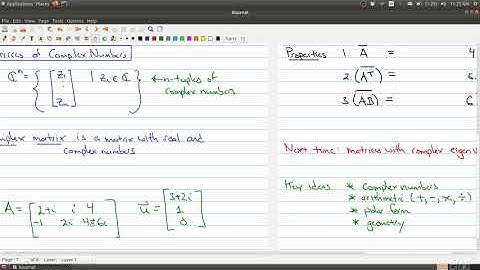 Applications Places
11:25 AM
Xournal
File Edit View Journal Tools Options Help
trices of Complex Numbers
ℂⁿ = { [z₁ ⋮ zₙ] | zᵢ ∈ ℂ } ← n-tuples of
complex numbers
omplex matrix is a matrix with real and
complex numbers
A = [2+i i 4
-1 2i 4+6i]
u⃗ = [3+2i
1
0]
Properties 1. A̅ = 4
2. (A̅ᵀ̅) = 6.
3. (A̅B̅) = 6
Next time: matrices with complex eigenv
Key ideas * Complex numbers
* arithmetic (+, -, ×, ÷)
* polar form
* geometry
Page 7 of 8 Layer: Layer 1
Xournal